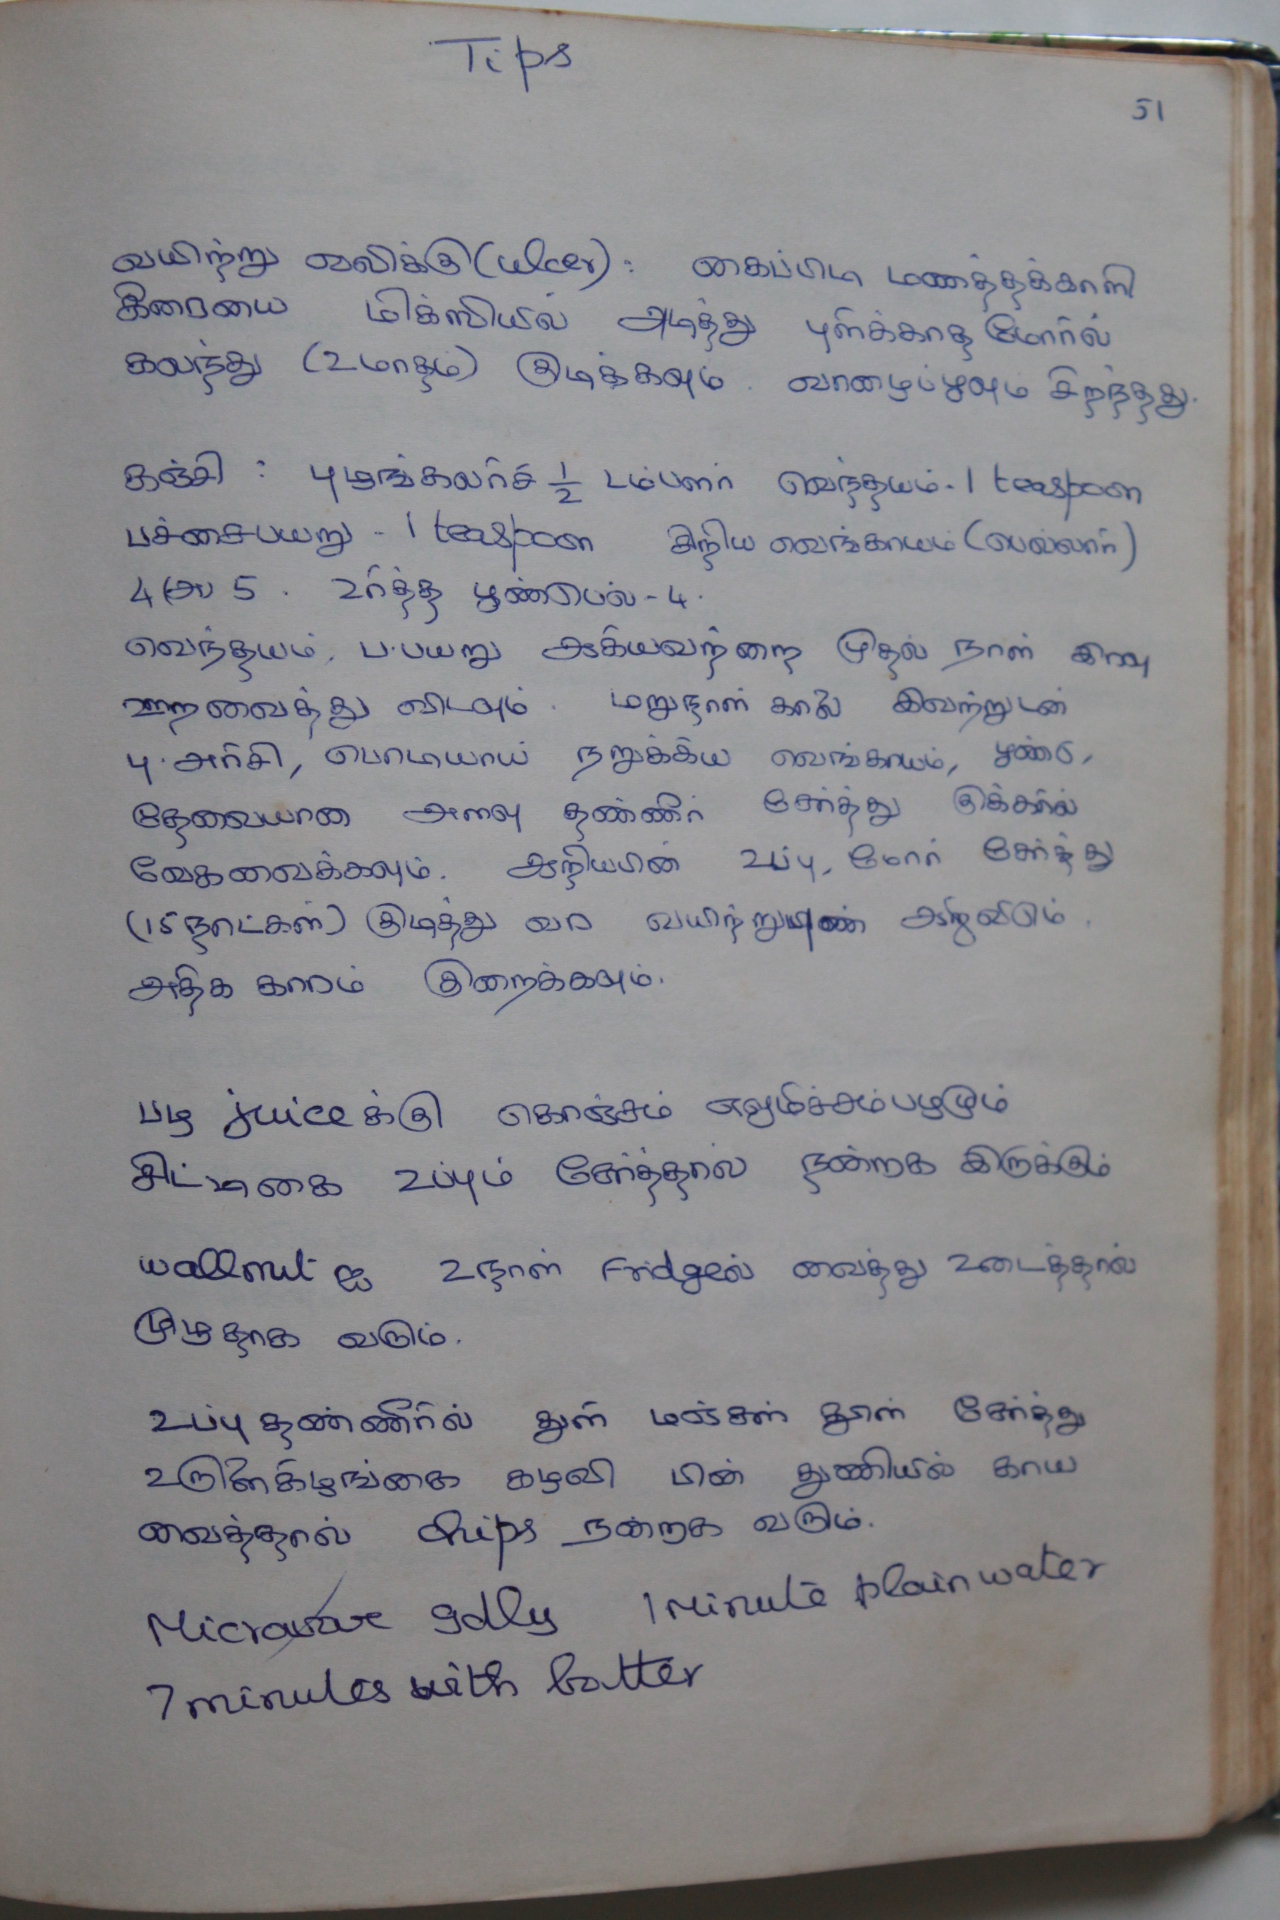 Tips
51
வயிற்று வலிக்கு (ulcer) : கைப்பிடி மணத்தக்காளி
கீரையை மிக்ஸியில் அடித்து புளிக்காத மோரில்
கலந்து (2 மாதம்) குடிக்கவும். வாழைப்பூவும் சிறந்தது.
கஞ்சி : புழுங்கலரிசி ½ டம்ளர் வெந்தயம் - 1 teaspoon
பச்சைபயறு - 1 teaspoon சிறிய வெங்காயம்
4 (அ) 5. உரித்த பூண்டு - 4.
வெந்தயம், ப.பயறு ஆகியவற்றை முதல் நாள் இரவு
ஊறவைத்து விடவும். மறுநாள் காலை இவற்றுடன்
பு. அரிசி, பொடியாய் நறுக்கிய வெங்காயம், பூண்டு,
தேவையான அளவு தண்ணீர் சேர்த்து குக்கரில்
வேகவைக்கவும். ஆறியபின் உப்பு, மோர் சேர்த்து
(15 நாட்கள்) குடித்து வர வயிற்றுபுண் ஆறிவிடும்.
அதிக காரம் குறைக்கவும்.
பழ juice க்கு கொஞ்சம் எலுமிச்சம்பழமும்
சிட்டிகை உப்பும் சேர்த்தால் நன்றாக இருக்கும்
wallnut ஐ 2 நாள் Fridgeல் வைத்து உடைத்தால்
முழுதாக வரும்.
உப்பு தண்ணீரில் துளி மஞ்சள் தூள் சேர்த்து
உருளைகிழங்கை கழுவி பின் துணியில் காய
வைத்தால் chips நன்றாக வரும்.
Microwave Idly 1 minute plain water
7 minutes with batter